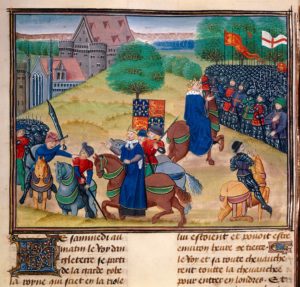 Le sammedi au
matin le Roy dan
gleterre se parti
de la garde robe
la royne qui siet en la riole
lui estoient et pouoit estre
environ heure de tierce
le Roy et sa route chevauche
rent toutte la chevauchee
pour entrer en londres. Et